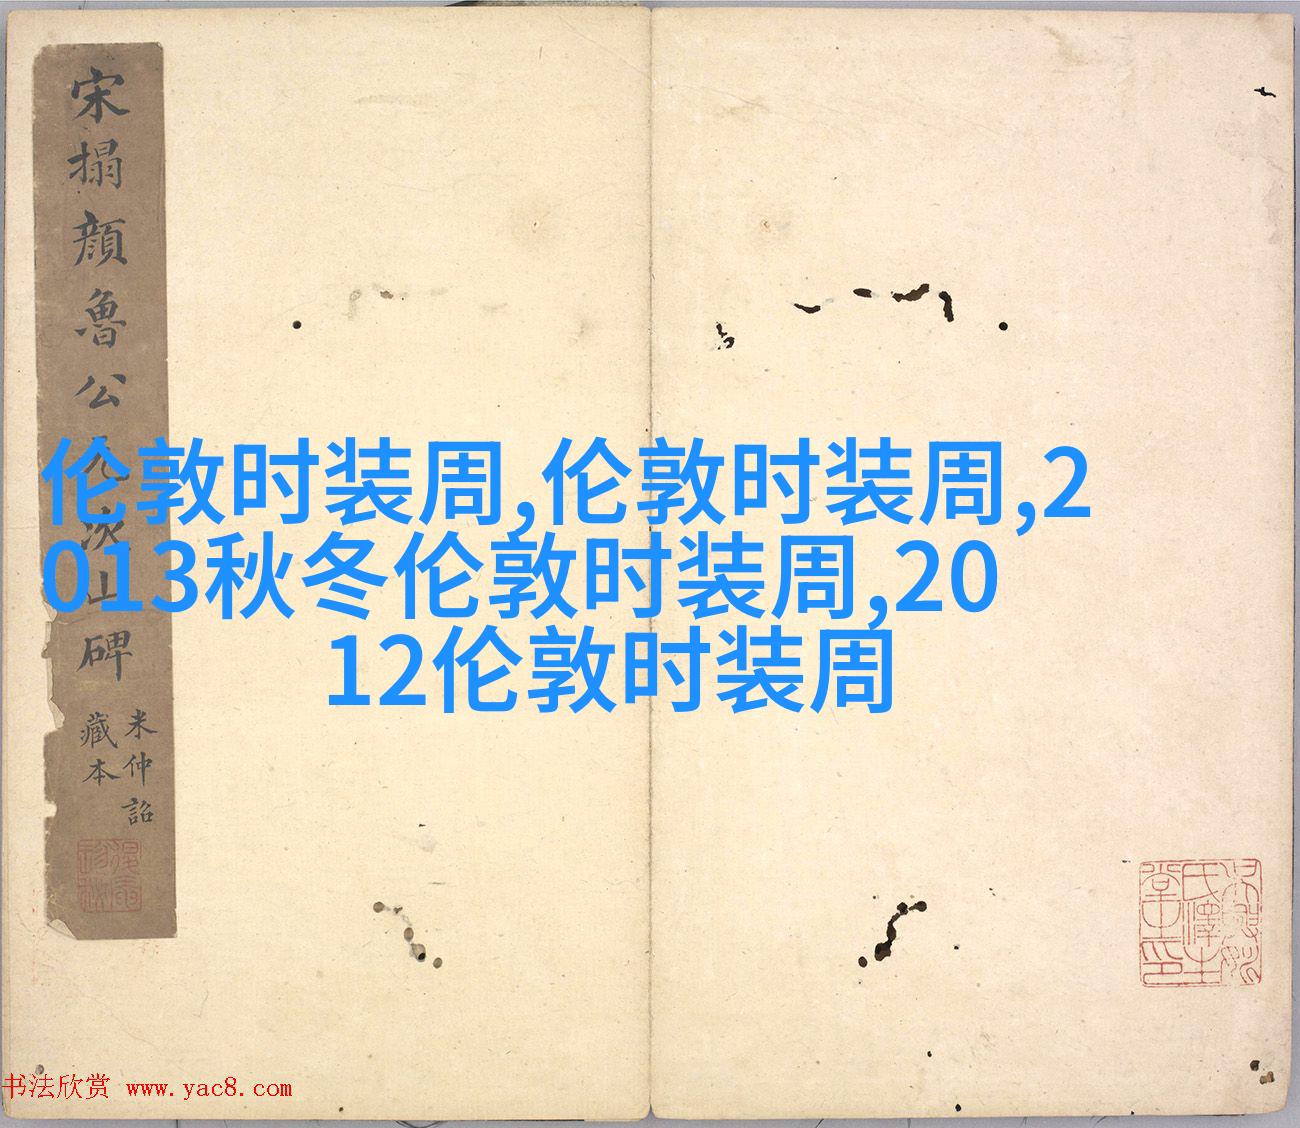 宋搨顔魯公元次山碑
米仲詔
藏本
伦敦时装周,伦敦时装周,2
013秋冬伦敦时装周,20
12伦敦时装周
书法欣赏 www.yac8.com